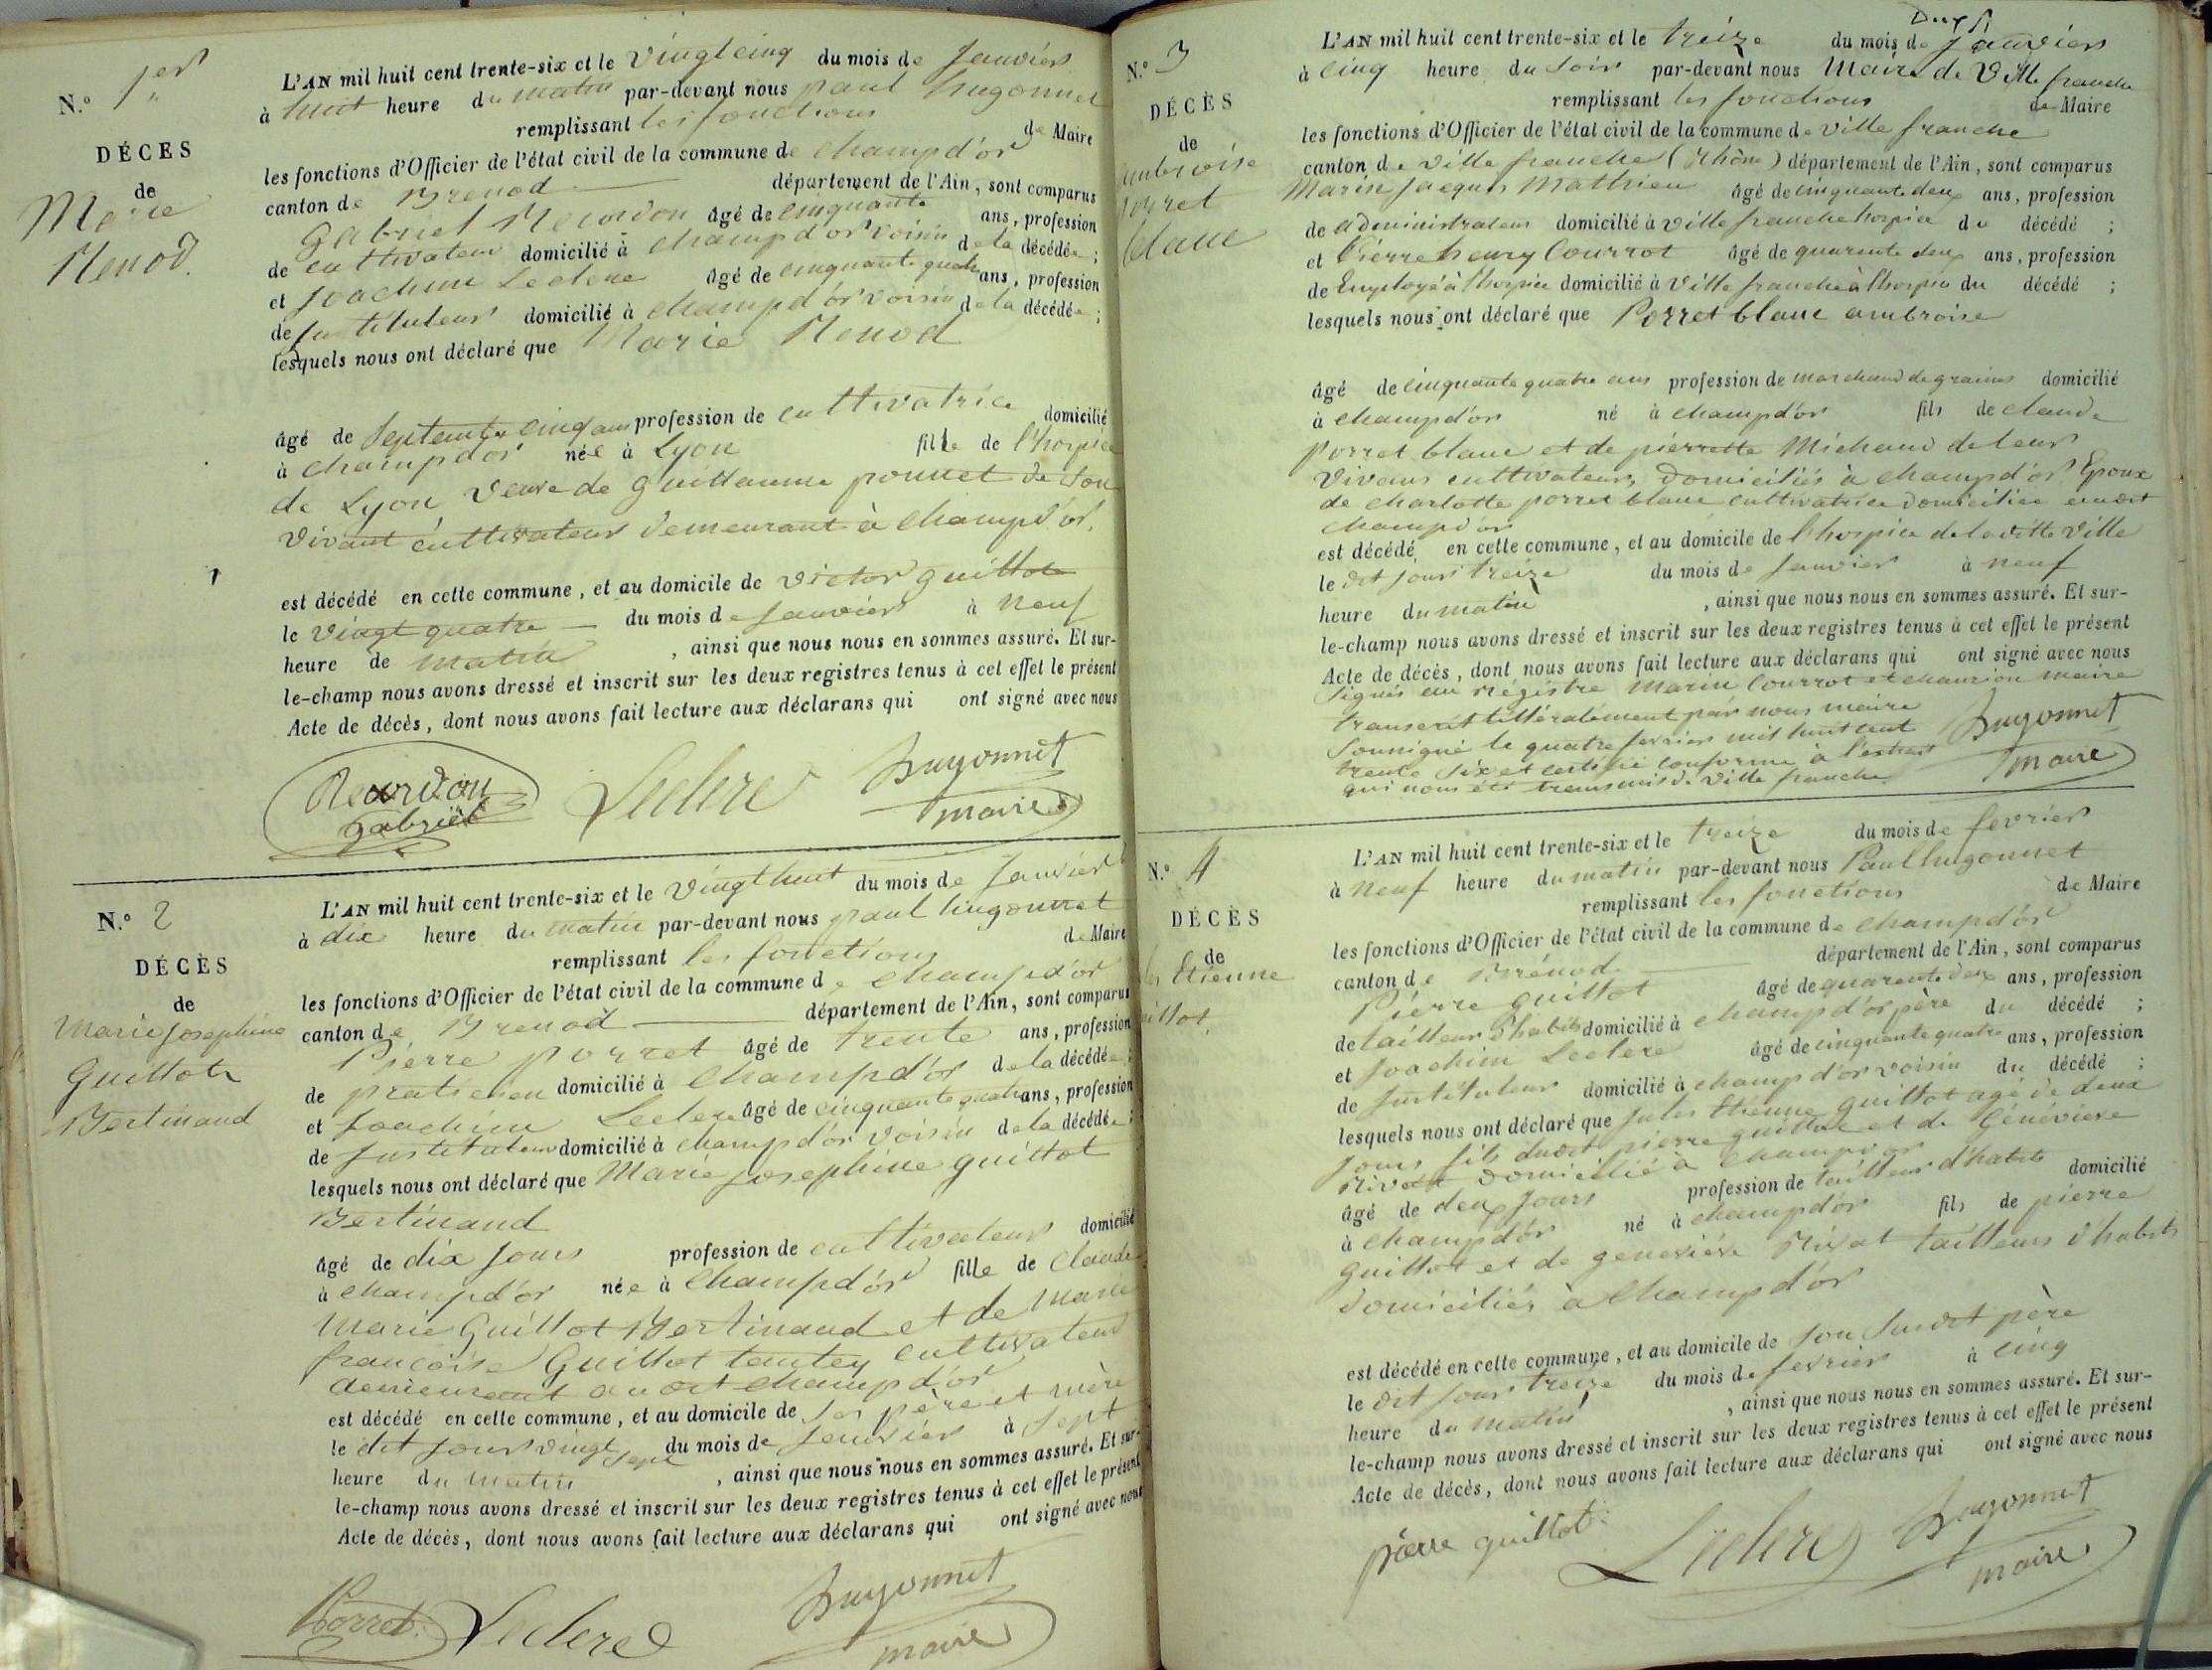 N.º 1.er
DÉCES
de
Marie
Renod.
L'AN mil huit cent trente-six et le vingt cinq du mois de janvier
à huit heure du matin par-devant nous paul hugonnet
remplissant les fonctions de Maire
les fonctions d'Officier de l'état civil de la commune de champd'or
canton de Brenod département de l'Ain, sont comparus
gabriel âgé de cinquante ans, profession
de cultivateur domicilié à champd'or voisin de la décédée ;
et joachim Leclerc âgé de cinquante quatre ans, profession
de instituteur domicilié à champd'or voisin de la décédée ;
lesquels nous ont déclaré que Marie Renod
âgé de septente cinq ans profession de cultivatrice domicilié
à champd'or née à Lyon fille de l'hospice
de Lyon veuve de guillaume ponnet de son
vivant cultivateur demeurant à champd'or.
est décédé en cette commune, et au domicile de victor guillot
le vingt quatre du mois de janvier à neuf
heure de matin , ainsi que nous nous en sommes assuré. Et sur-
le-champ nous avons dressé et inscrit sur les deux registres tenus à cet effet le présent
Acte de décès, dont nous avons fait lecture aux déclarans qui ont signé avec nous
gabriel Leclerc hugonnet
maire
N.º 2
DÉCÈS
de
Marie josephine
Guillot
Bertinand
L'AN mil huit cent trente-six et le vingt huit du mois de janvier
à dix heure du matin par-devant nous paul hugonnet
remplissant les fonctions de Maire
les fonctions d'Officier de l'état civil de la commune de champd'or
canton de Brenod département de l'Ain, sont comparus
Pierre porret âgé de trente ans, profession
de praticien domicilié à champd'or de la décédée ;
et joachim Leclerc âgé de cinquante quatre ans, profession
de instituteur domicilié à champd'or voisin de la décédée ;
lesquels nous ont déclaré que Marie josephine guillot
Bertinand
âgé de dix jours profession de cultivateur domicilié
à champd'or née à champd'or fille de claude
marie Guillot Bertinand et de marie
françoise Guillot tantey cultivateur
demeurant audit champd'or
est décédé en cette commune, et au domicile de ses père et mère
le dit jour vingt sept du mois de janvier à sept
heure du matin , ainsi que nous nous en sommes assuré. Et sur-
le-champ nous avons dressé et inscrit sur les deux registres tenus à cet effet le présent
Acte de décès, dont nous avons fait lecture aux déclarans qui ont signé avec nous
Porret Leclerc hugonnet
maire
N.º 3
DÉCÈS
de
ambroise
porret
blanc
L'AN mil huit cent trente-six et le treize du mois de janvier
à cinq heure du soir par-devant nous Maire de Ville franche
remplissant les fonctions de Maire
les fonctions d'Officier de l'état civil de la commune de ville franche
canton de ville franche (Rhône) département de l'Ain, sont comparus
Marin jacques Mathieu âgé de cinquante deux ans, profession
de administrateur domicilié à villefranche hospice du décédé ;
et Pierre henry Courrot âgé de quarente deux ans, profession
de Employé à l'hospice domicilié à ville franche à l'hospice du décédé ;
lesquels nous ont déclaré que Porret blanc ambroise
âgé de cinquante quatre ans profession de marchand de grains domicilié
à champd'or né à champd'or fils de claude
porret blanc et de pierrette Michaud de leur
vivans cultivateurs domiciliés à champd'or Epoux
de charlotte porret blanc cultivatrice domiciliée audit
champd'or
est décédé en cette commune, et au domicile de l'hospice de la ditte ville
le dit jour treize du mois de janvier à neuf
heure du matin , ainsi que nous nous en sommes assuré. Et sur-
le-champ nous avons dressé et inscrit sur les deux registres tenus à cet effet le présent
Acte de décès, dont nous avons fait lecture aux déclarans qui ont signé avec nous
signés au Régistre Marin Courrot et maire
transcrit littéralement par nous maire
soussigné le quatre fevrier mil huit cent
trente six et certifié conforme à l'extrait
qui nous été transmis de ville franche
hugonnet
maire
N.º 4
DÉCÈS
de
Etienne
L'AN mil huit cent trente-six et le treize du mois de fevrier
à neuf heure du matin par-devant nous Paul hugonnet
remplissant les fonctions de Maire
les fonctions d'Officier de l'état civil de la commune de champd'or
canton de Brénod département de l'Ain, sont comparus
Pierre guillot âgé de quarente deux ans, profession
de tailleur d'habits domicilié à champd'or père du décédé ;
et joachim Leclerc âgé de cinquante quatre ans, profession
de instituteur domicilié à champd'or voisin du décédé ;
lesquels nous ont déclaré que jules Etienne guillot agé de deux
jours fils dudit pierre guillot et de Généviève
Rivat domicilié à champd'or
âgé de deux jours profession de tailleur d'habits domicilié
à champd'or né à champd'or fils de pierre
guillot et de geneviéve Rivat tailleur d'habits
domiciliés à Champd'or
est décédé en cette commune, et au domicile de son susdit père
le dit jour treize du mois de fevrier à cinq
heure du matin , ainsi que nous nous en sommes assuré. Et sur-
le-champ nous avons dressé et inscrit sur les deux registres tenus à cet effet le présent
Acte de décès, dont nous avons fait lecture aux déclarans qui ont signé avec nous
pierre guillot Leclerc hugonnet
maire